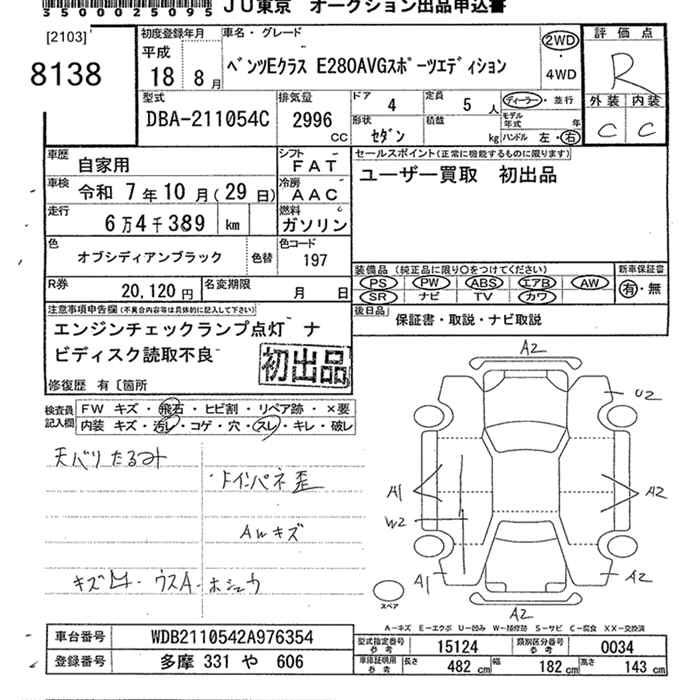 3500025095 JU東京 オークション出品申込書
[2103]
8138
初度登録年月
平成
18年8月
車名・グレード
ベンツEクラス E280AVGスポーツエディション
2WD
・
4WD
評価点
R
外装 内装
C C
型式
DBA-211054C
排気量
2996 CC
ドア 4
定員 5 人
形状 セダン
積載 kg
ディーラー・並行
モデル年式 年
ハンドル 左・右
車歴 自家用
車検 令和 7年10月(29日)
走行 6万4千389 km
色 オブシディアンブラック 色替
シフト FAT
冷房 AAC
燃料 ガソリン
色コード 197
R券 20,120円
名変期限 月 日
セールスポイント(正常に機能するものに限ります)
ユーザー買取 初出品
装備品 (純正品に限り○をつけてください)
PS PW ABS エアB AW
SR ナビ TV カワ
新車保証書
有・無
後日品 保証書・取説・ナビ取説
注意事項申告欄(不具合内容等は具体的に記入して下さい)
エンジンチェックランプ点灯 ナ
ビディスク読取不良
初出品
修復歴 有〔箇所
検査員記入欄
FW キズ・飛石・ヒビ割・リペア跡・×要
内装 キズ・汚レ・コゲ・穴・スレ・キレ・破レ
天バリたるみ
インパネ歪
AWキズ
キズ凹・ウスA・ホシュウ
A2
U2
A1
A2
W2
A1
A2
A2
スペア
A−キズ E−エクボ U−凹み W−補修跡 S−サビ C−腐食 XX−交換済
車台番号 WDB2110542A976354
登録番号 多摩 331 や 606
型式指定番号 参考 15124
類別区分番号 参考 0034
車庫証明用 参考 長さ 482 cm 幅 182 cm 高さ 143 cm